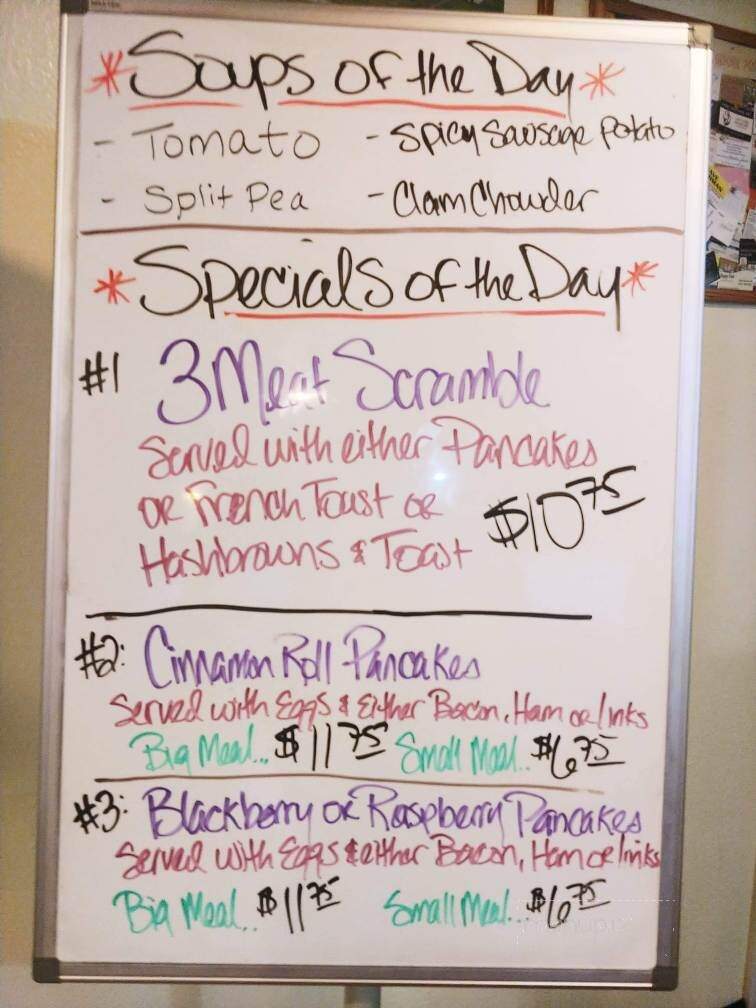 *Soups of the Day*
- Tomato - Spicy Sausage Potato
- Split Pea - Clam Chowder
*Specials of the Day*
#1 3 Meat Scramble
Served with either Pancakes
or French Toast or
Hashbrowns & Toast $10.75
#2: Cinnamon Roll Pancakes
Served with Eggs & Either Bacon, Ham or links
Big Meal... $11.75 Small Meal.. $6.75
#3: Blackberry or Raspberry Pancakes
Served with Eggs & either Bacon, Ham or links
Big Meal.. $11.75 Small Meal... $6.75